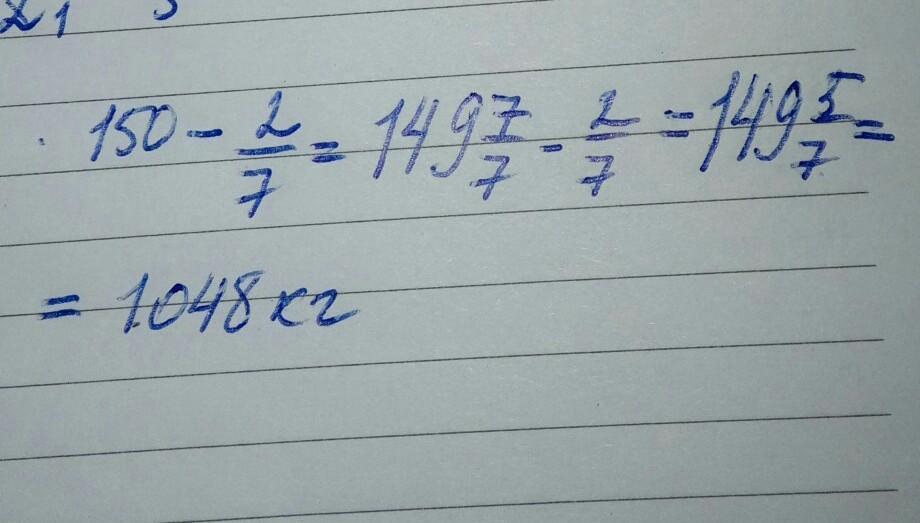 150 - 2/7 = 149 7/7 - 2/7 = 149 5/7 =
= 1.048 кг